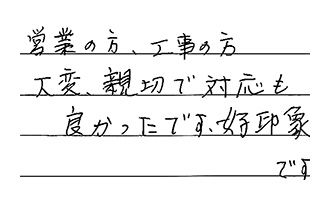 営業の方、工事の方
大変、親切で対応も
良かったです、好印象
です